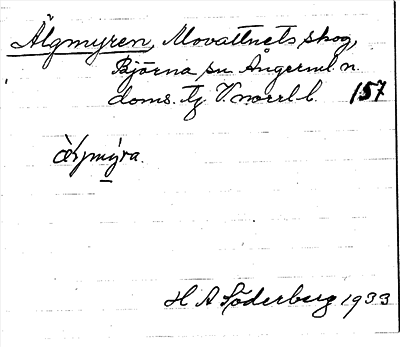 Älgmyren, Movattnets skog,
Björna sn Ångerml. n.
doms. Tg V.norrl. l. 157
myra.
H A Söderberg 1933